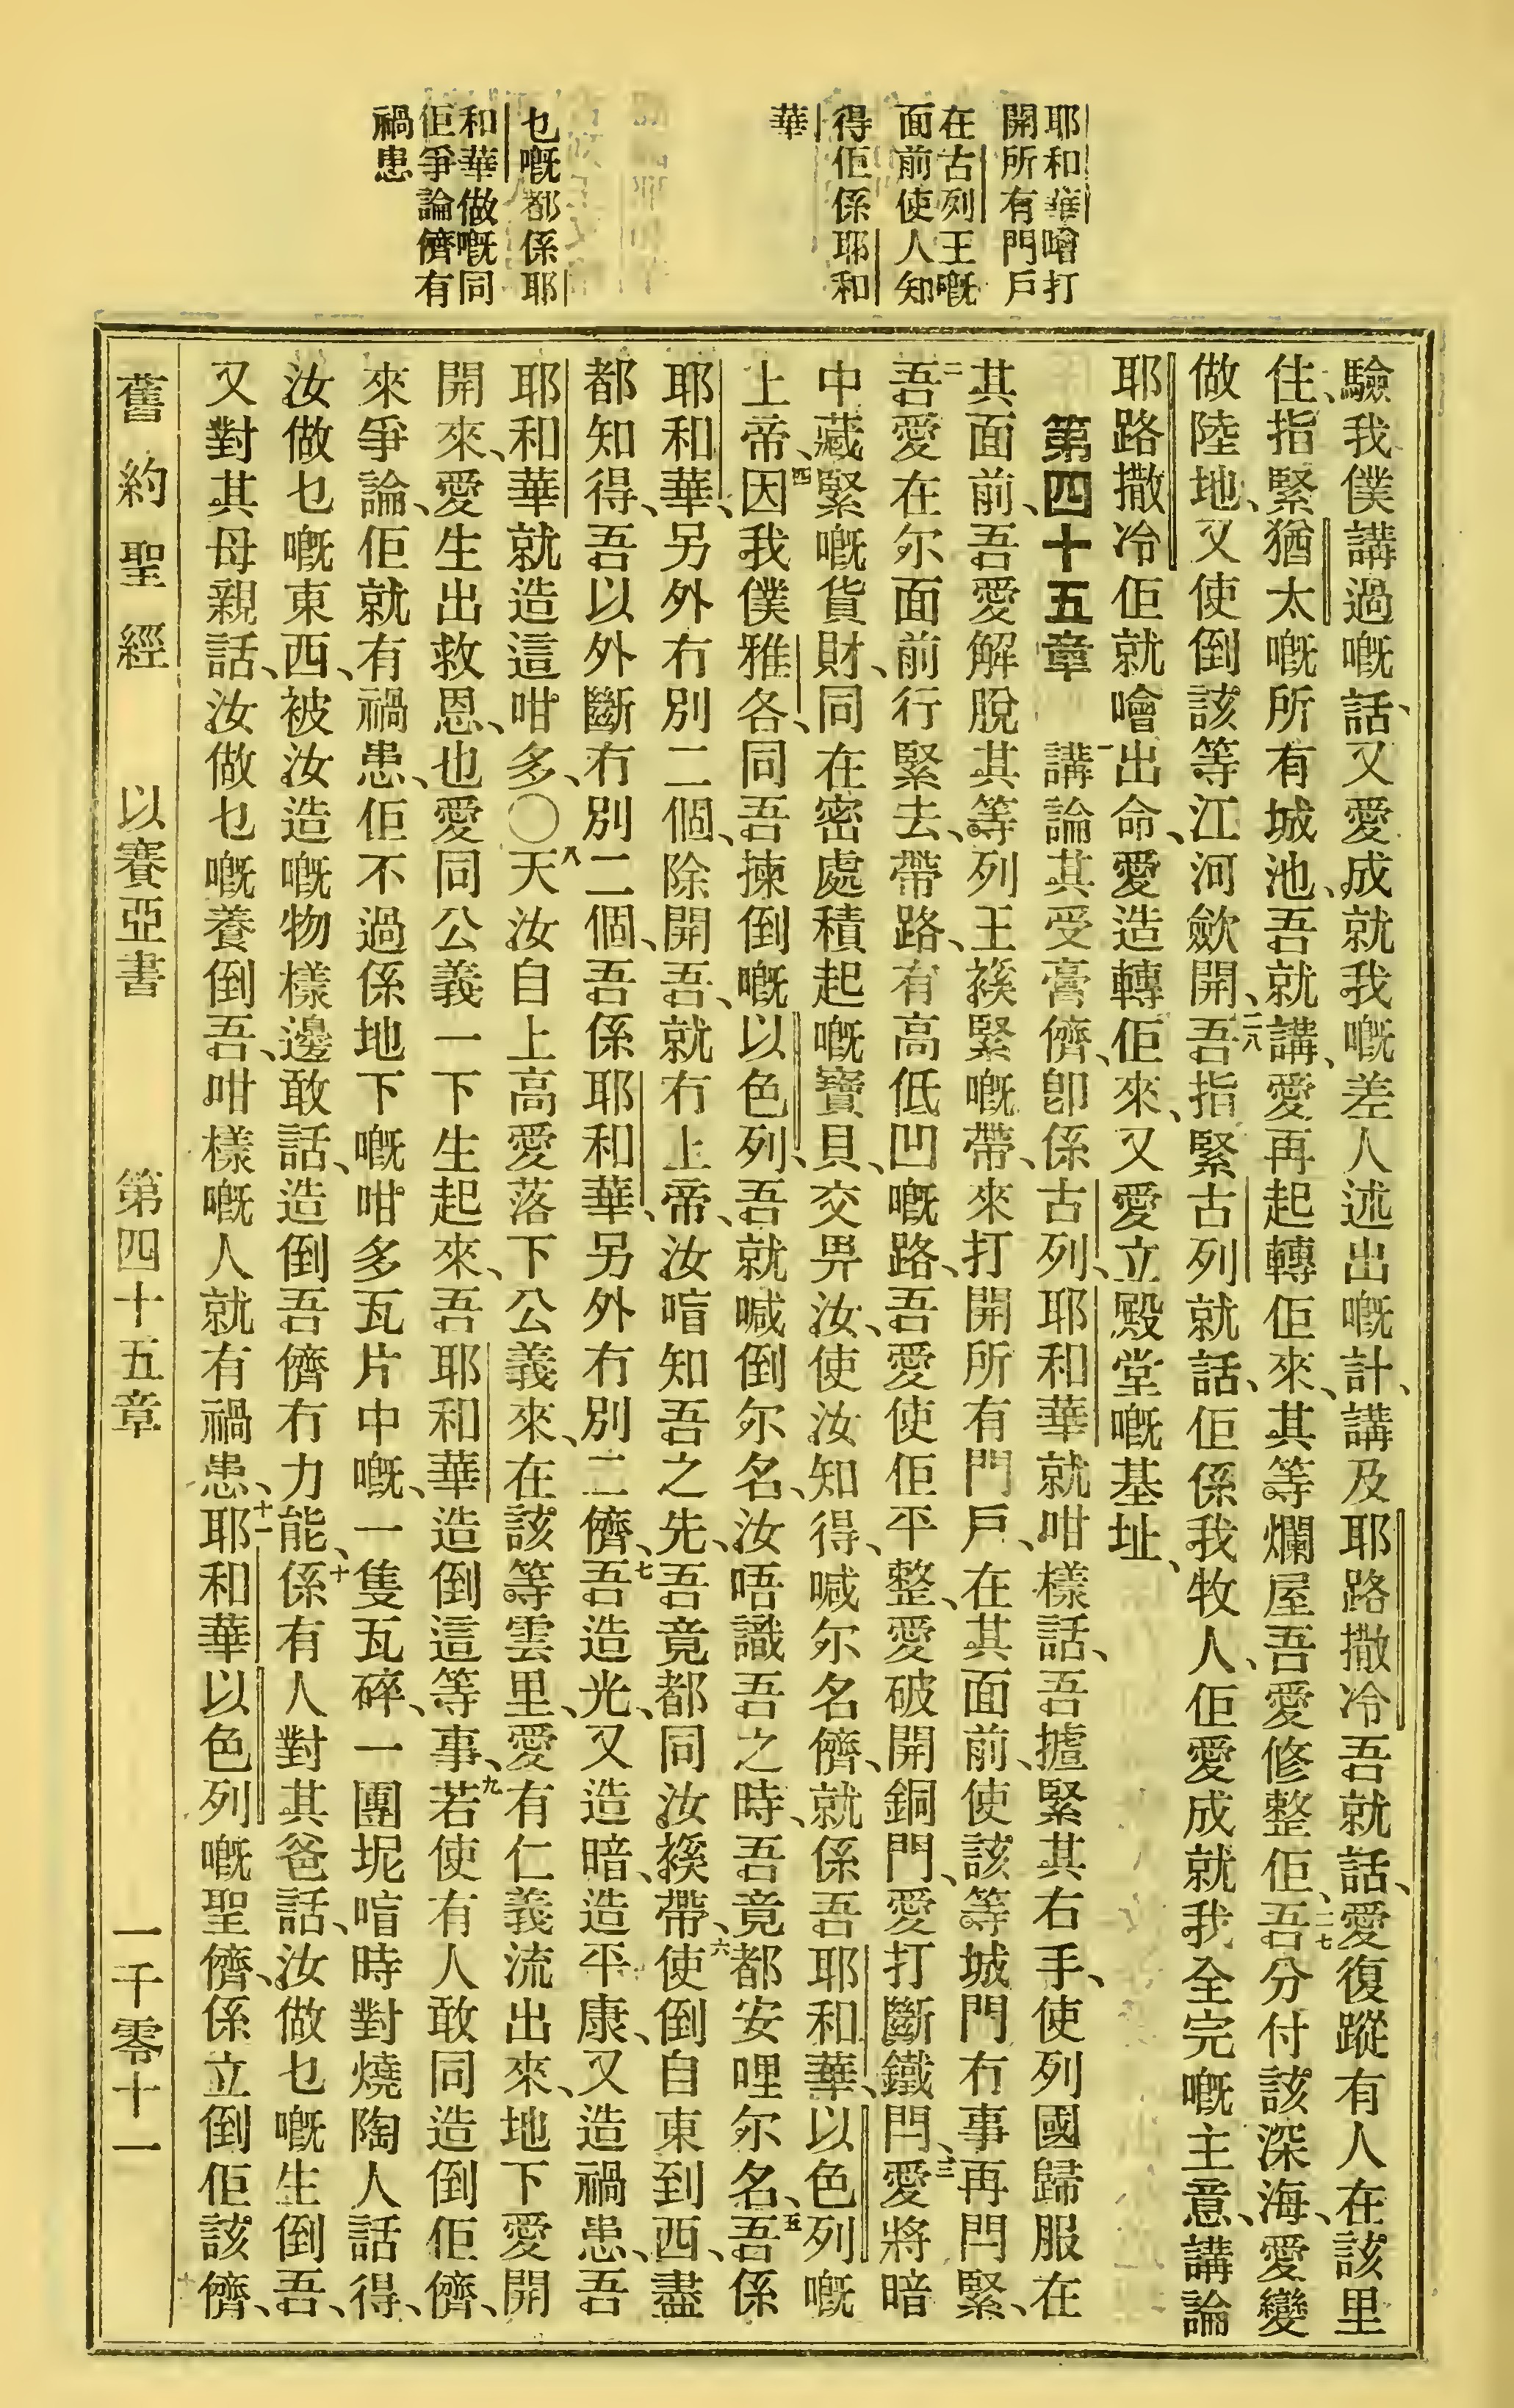 耶和華噲打
開所有門戶
在古列王嘅
面前使人知
得佢係耶和
華
乜嘅都係耶
和華做嘅同
佢爭論儕有
禍患
驗我僕講過嘅話、又愛成就我嘅差人述出嘅計、講及耶路撒冷吾就話、愛復蹤有人在該里
住、指緊猶太嘅所有城池、吾就講、愛再起轉佢來、其等爛屋吾愛修整佢、二七吾分付該深海、愛變
做陸地、又使倒該等江河歛開、二八吾指緊古列就話、佢係我牧人、佢愛成就我全完嘅主意、講論
耶路撒冷佢就噲出命、愛造轉佢來、又愛立殿堂嘅基址、
第四十五章 一講論其受膏儕、卽係古列、耶和華就咁樣話、吾摣緊其右手、使列國歸服在
其面前、吾愛解脫其等列王𧜵緊嘅帶、來打開所有門戶、在其面前、使該等城門冇事再閂緊、
二吾愛在尔面前行緊去、帶路、有高低凹嘅路、吾愛使佢平整、愛破開銅門、愛打斷鐵閂、三愛將暗
中藏緊嘅貨財、同在密處積起嘅寶貝、交畀汝、使汝知得、喊尔名儕、就係吾耶和華、以色列嘅
上帝、四因我僕雅各、同吾揀倒嘅以色列、吾就喊倒尔名、汝唔識吾之時、吾竟都安哩尔名、五吾係
耶和華、另外冇別二個、除開吾、就冇上帝、汝喑知吾之先、吾竟都同汝𧜵帶、六使倒自東到西、盡
都知得、吾以外斷冇別二個、吾係耶和華、另外冇別二儕、七吾造光、又造暗、造平康、又造禍患、吾
耶和華就造這咁多、〇八天汝自上高愛落下公義來、在該等雲里、愛有仁義流出來、地下愛開
開來、愛生出救恩、也愛同公義一下生起來、吾耶和華造倒這等事、九若使有人敢同造倒佢儕、
來爭論、佢就有禍患、佢不過係地下嘅咁多瓦片中嘅、一隻瓦碎、一團坭喑時對燒陶人話得、
汝做乜嘅東西、被汝造嘅物樣邊敢話、造倒吾儕冇力能、十係有人對其爸話、汝做乜嘅生倒吾、
又對其母親話、汝做乜嘅養倒吾、咁樣嘅人就有禍患、十一耶和華以色列嘅聖儕、係立倒佢該儕、
舊約聖經 以賽亞書 第四十五章 一千零十一